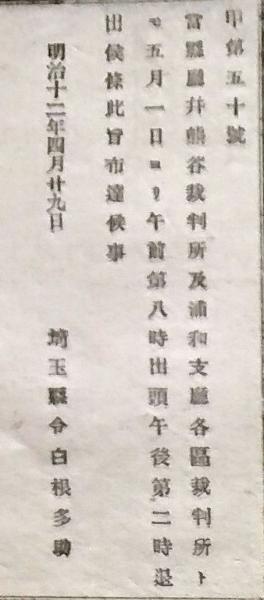 甲第五十號
當縣廳幷熊谷裁判所及浦和支廳各區裁判所ト
モ五月一日ヨリ午前第八時出頭午後第二時退
出候條此旨布達候事
明治十二年四月廿九日
埼玉縣令白根多助